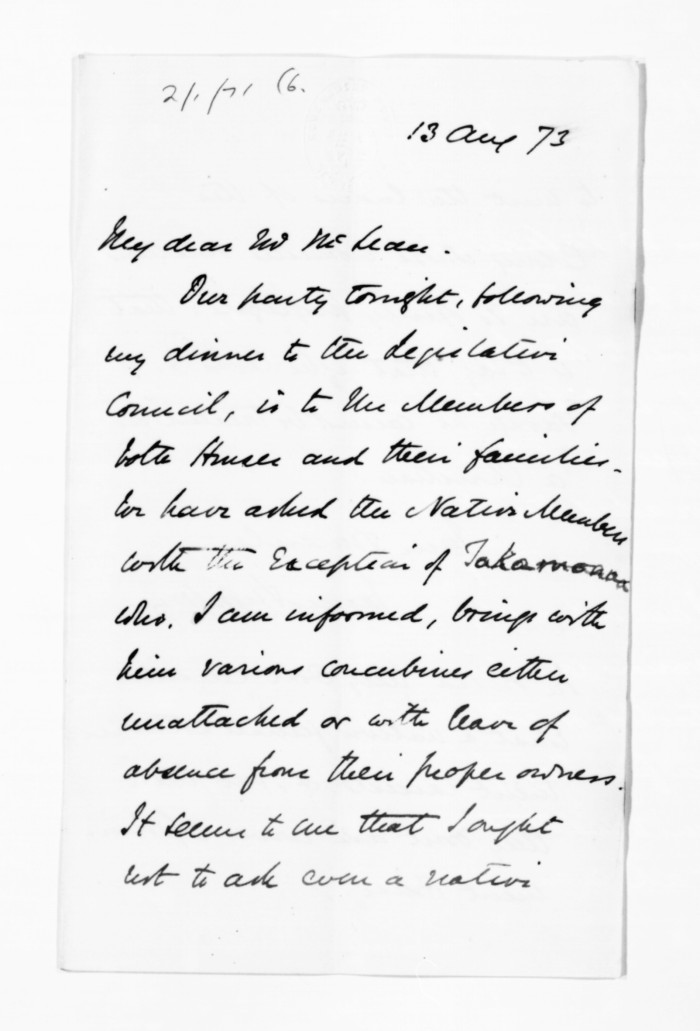 13 Aug 73
My dear Mr McLean.
Our party tonight, following
my dinner to the Legislative
Council, is to the Members of
both Houses and their families.
We have asked the Native Members
with the exception of Takamoana
who, I am informed, brings with
him various concubines either
unattached or with leave of
absence from their proper owners.
It seems to me that I ought
not to ask even a native